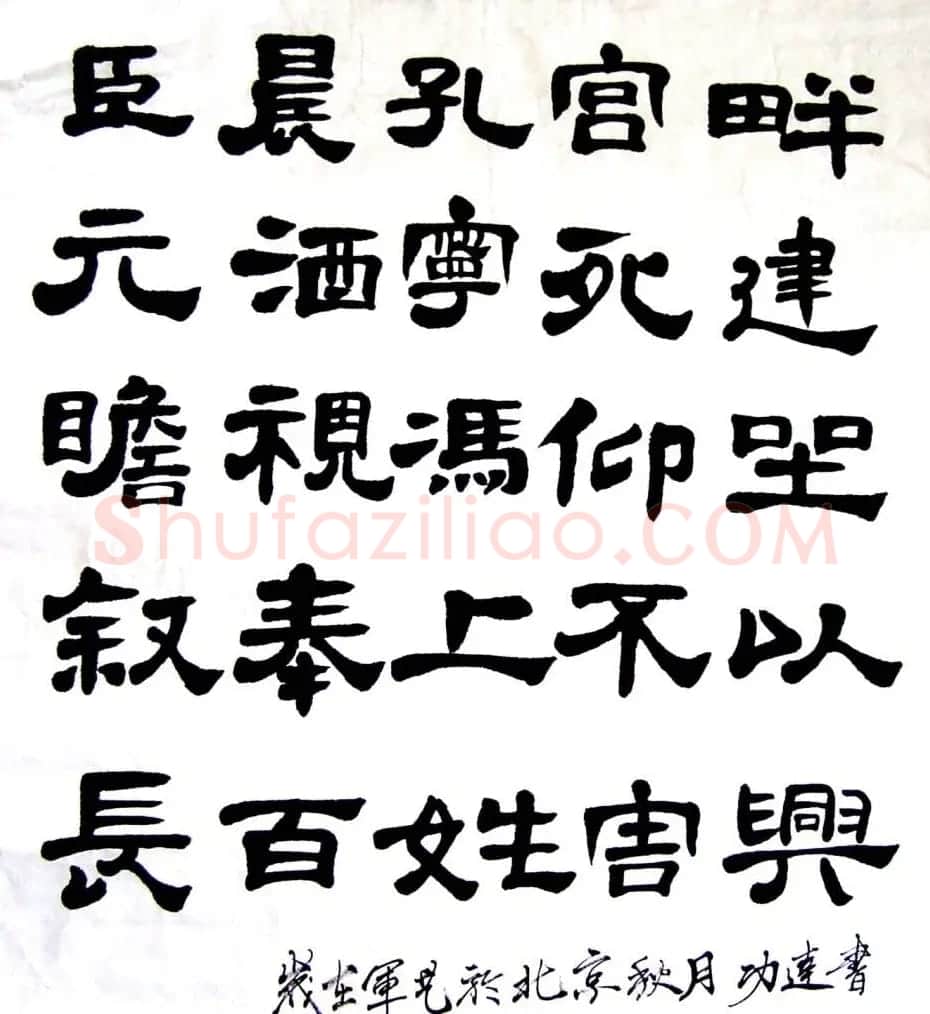 臣晨孔宮畔
元酒寧死建
瞻視馮仰坐
叙奉上不以
長百姓害興
歲在軍於北京秋月 功達書
Shufaziliao.COM